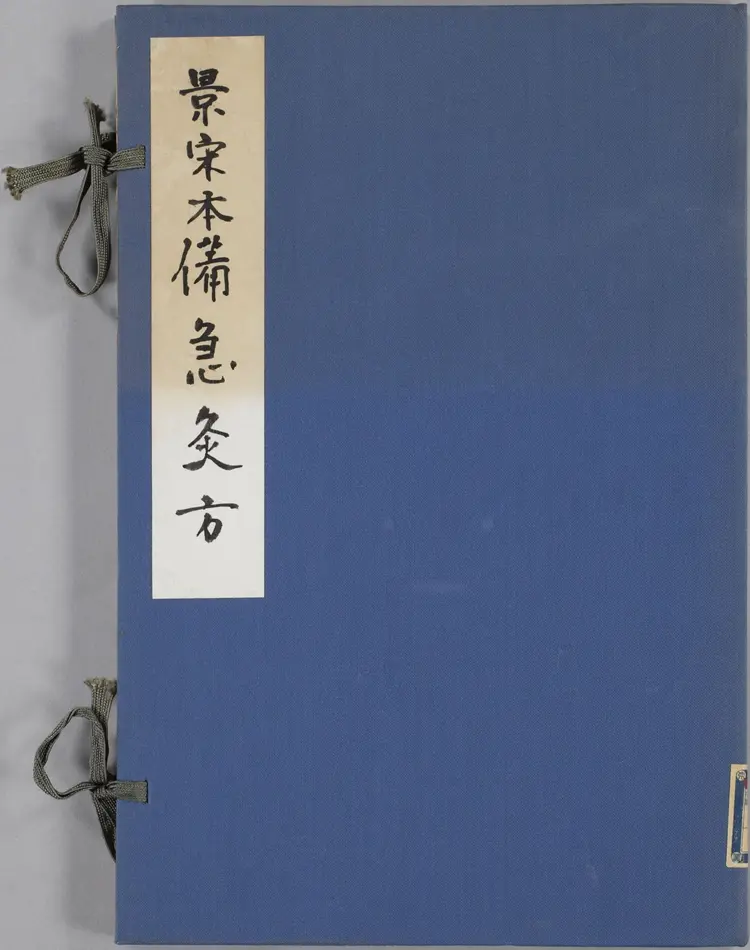 景宋本備急灸方